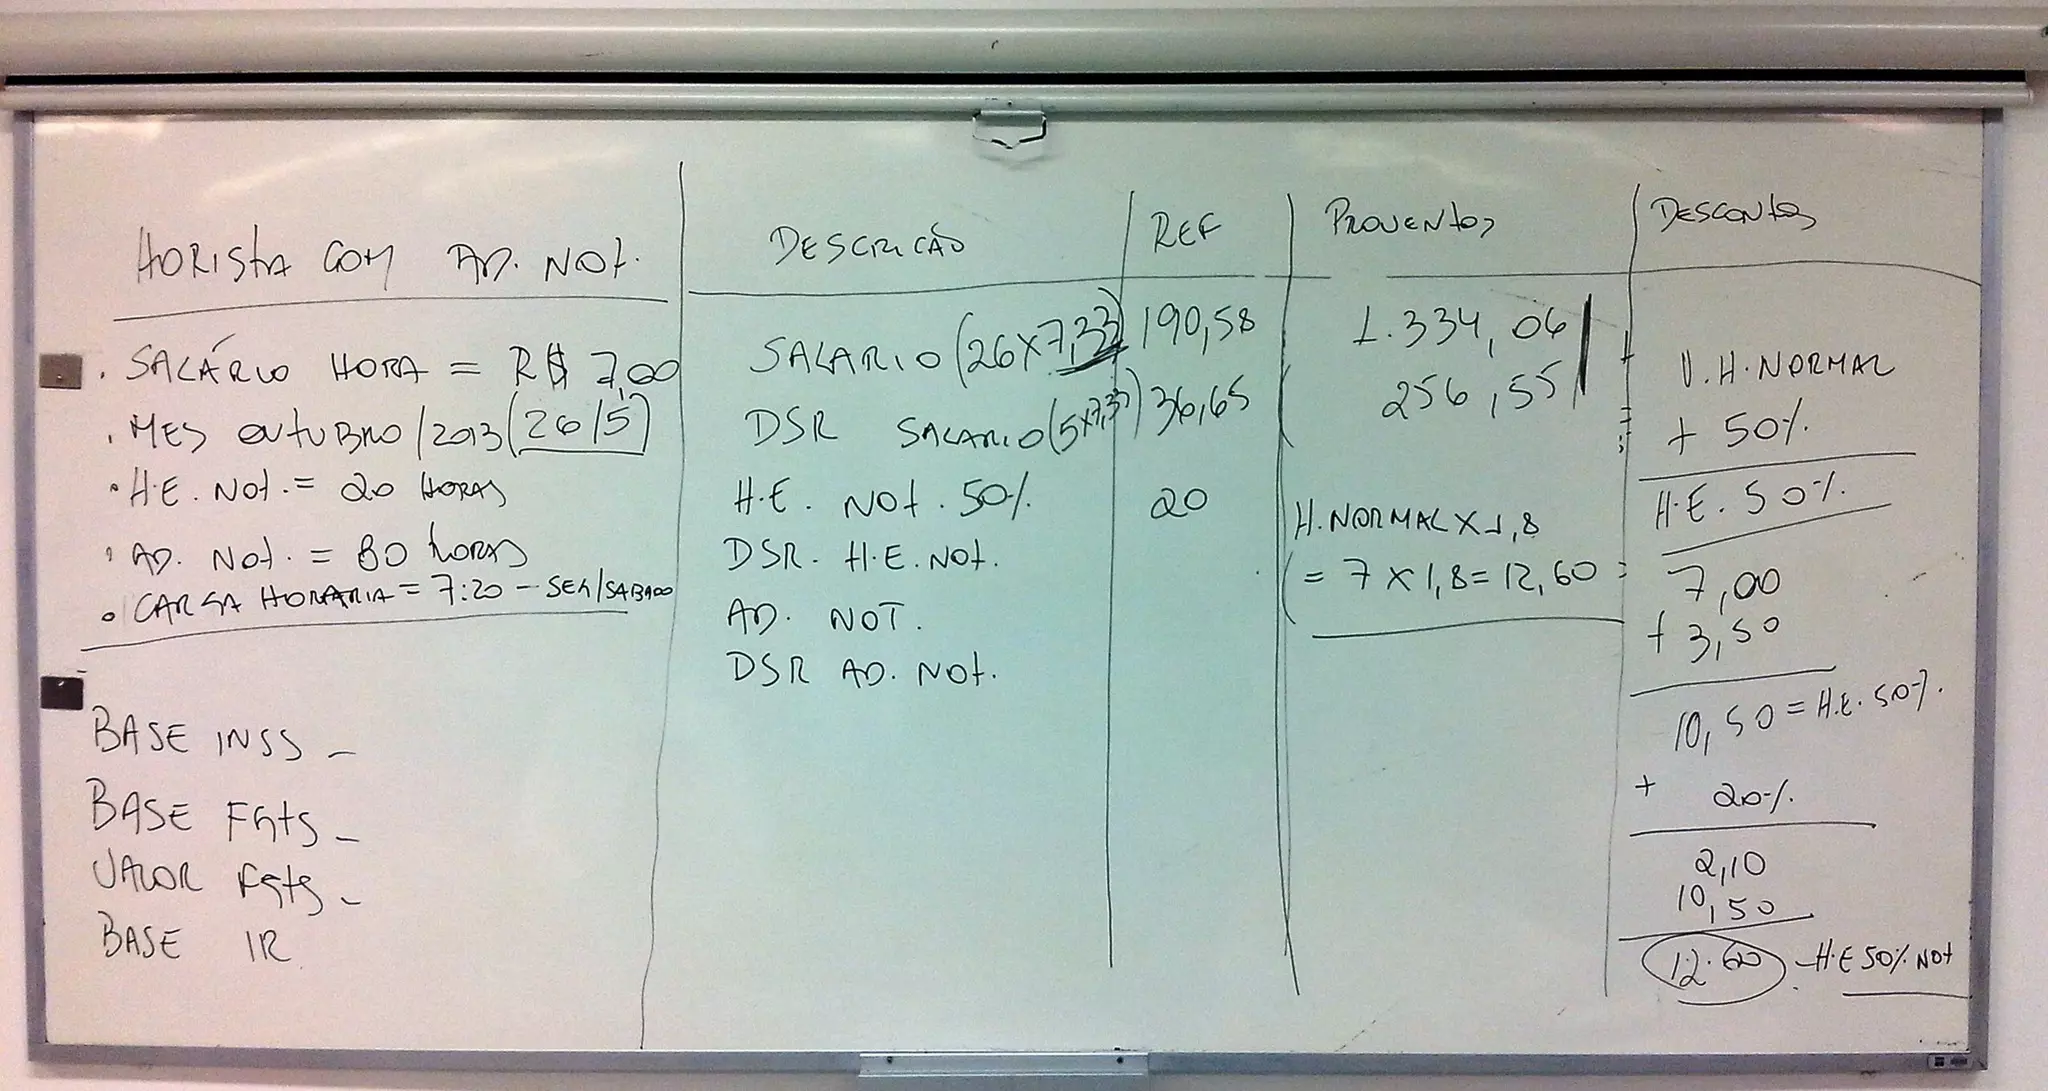 HORISTA COM AD. NOT.
. SALÁRIO HORA = R$ 7,00
. MES OUTUBRO/2013 (26/5)
. H.E. NOT. = 20 HORAS
. AD. NOT. = 80 HORAS
. CARGA HORARIA = 7:20 - SEG/SABADO
BASE INSS -
BASE FGTS -
VALOR FGTS -
BASE IR
DESCRICÃO
SALARIO (26x7,33)
DSR SALARIO (5x7,33)
H.E. NOT. 50%
DSR. H.E. NOT.
AD. NOT.
DSR AD. NOT.
REF
190,58
36,65
20
PROVENTOS
1.334,06
256,55
H. NORMAL X 1,8
= 7 X 1,8 = 12,60
DESCONTOS
V. H. NORMAL
+ 50%
H.E. 50%
7,00
+ 3,50
10,50 = H.E. 50%.
+ 20%
2,10
10,50
12.60 - H.E 50% NOT